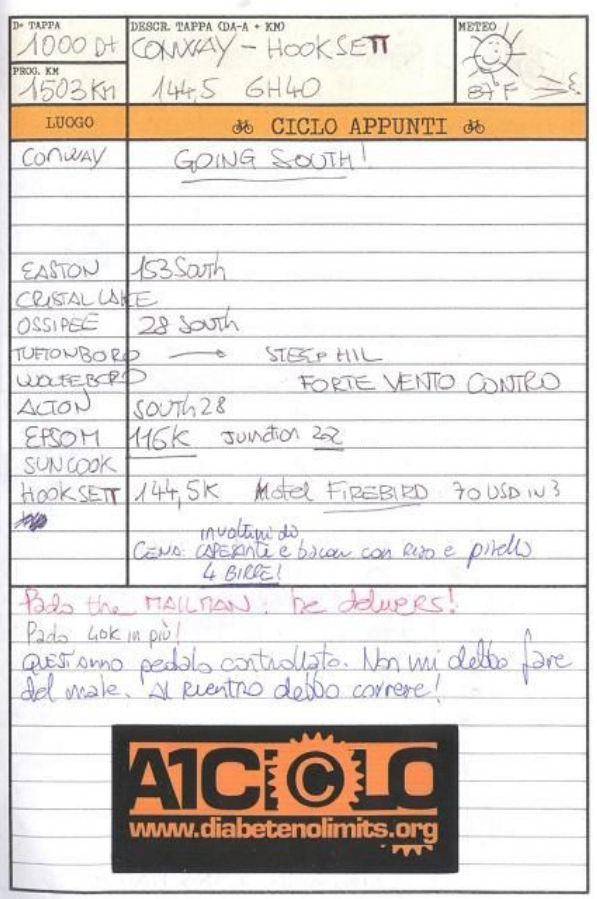 D+ TAPPA
1000 D+
DESCR. TAPPA (DA-A + KM)
CONWAY - HOOKSETT
METEO
PROG. KM
1503 KM
144,5 6H40
87 F
LUOGO
CICLO APPUNTI
CONWAY GOING SOUTH!
EASTON 153 South
CRISTAL LAKE
OSSIPEE 28 South
TUFTONBORO → STEEP HIL
WOLFEBORO FORTE VENTO CONTRO
ACTON SOUTH 28
EPSOM 116K Junction 202
SUNCOOK
HOOKSETT 144,5K Motel FIREBIRD 70 USD IN 3
involtini do
CENA: CAPESANTE e bacon con riso e piselli
4 BIRRE!
Pado the MAILMAN: he delivers!
Pado 40K in più!
QUEST'anno pedalo controllato. Non mi debbo fare
del male. Al rientro debbo correre!
A1CICLO
www.diabetenolimits.org